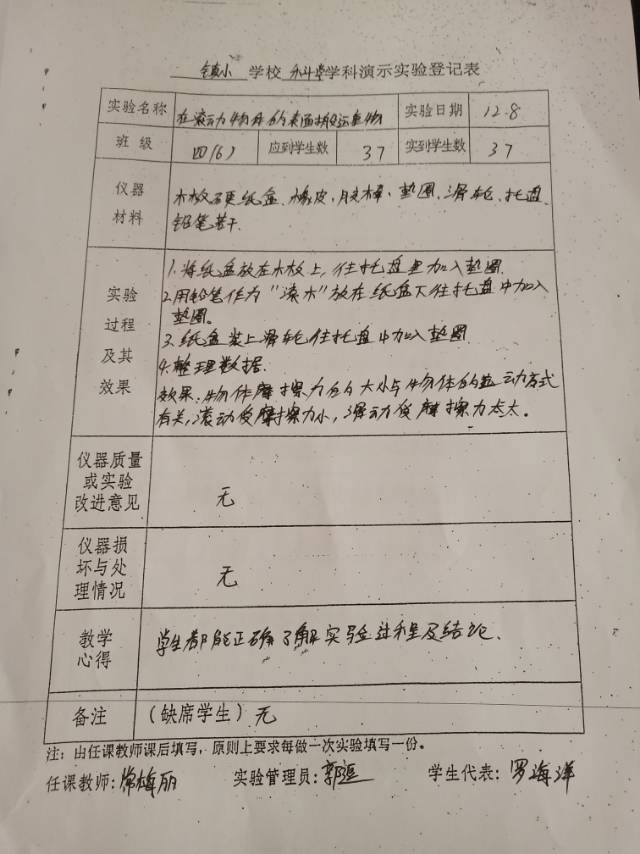 镇小 学校 科学 学科演示实验登记表
实验名称 在滚动物体的表面搬运重物 实验日期 12.8
班 级 四(6) 应到学生数 37 实到学生数 37
仪器材料 木板、硬纸盒、橡皮、胶棒、垫圈、滑轮、托盘
铅笔若干.
实验过程及其效果
1.将纸盒放在木板上,往托盘里加入垫圈.
2.用铅笔作为"滚木"放在纸盒下往托盘中加入
垫圈。
3.纸盒装上滑轮往托盘中加入垫圈
4.整理数据.
效果:物体摩擦力的大小与物体的运动方式
有关,滚动使摩擦力小,滑动使摩擦力大。
仪器质量
或实验
改进意见 无
仪器损
坏与处
理情况 无
教学
心得 学生都能正确了解实验过程及结论.
备注 (缺席学生)无
注:由任课教师课后填写,原则上要求每做一次实验填写一份。
任课教师:常梅丽 实验管理员: 学生代表:罗海洋